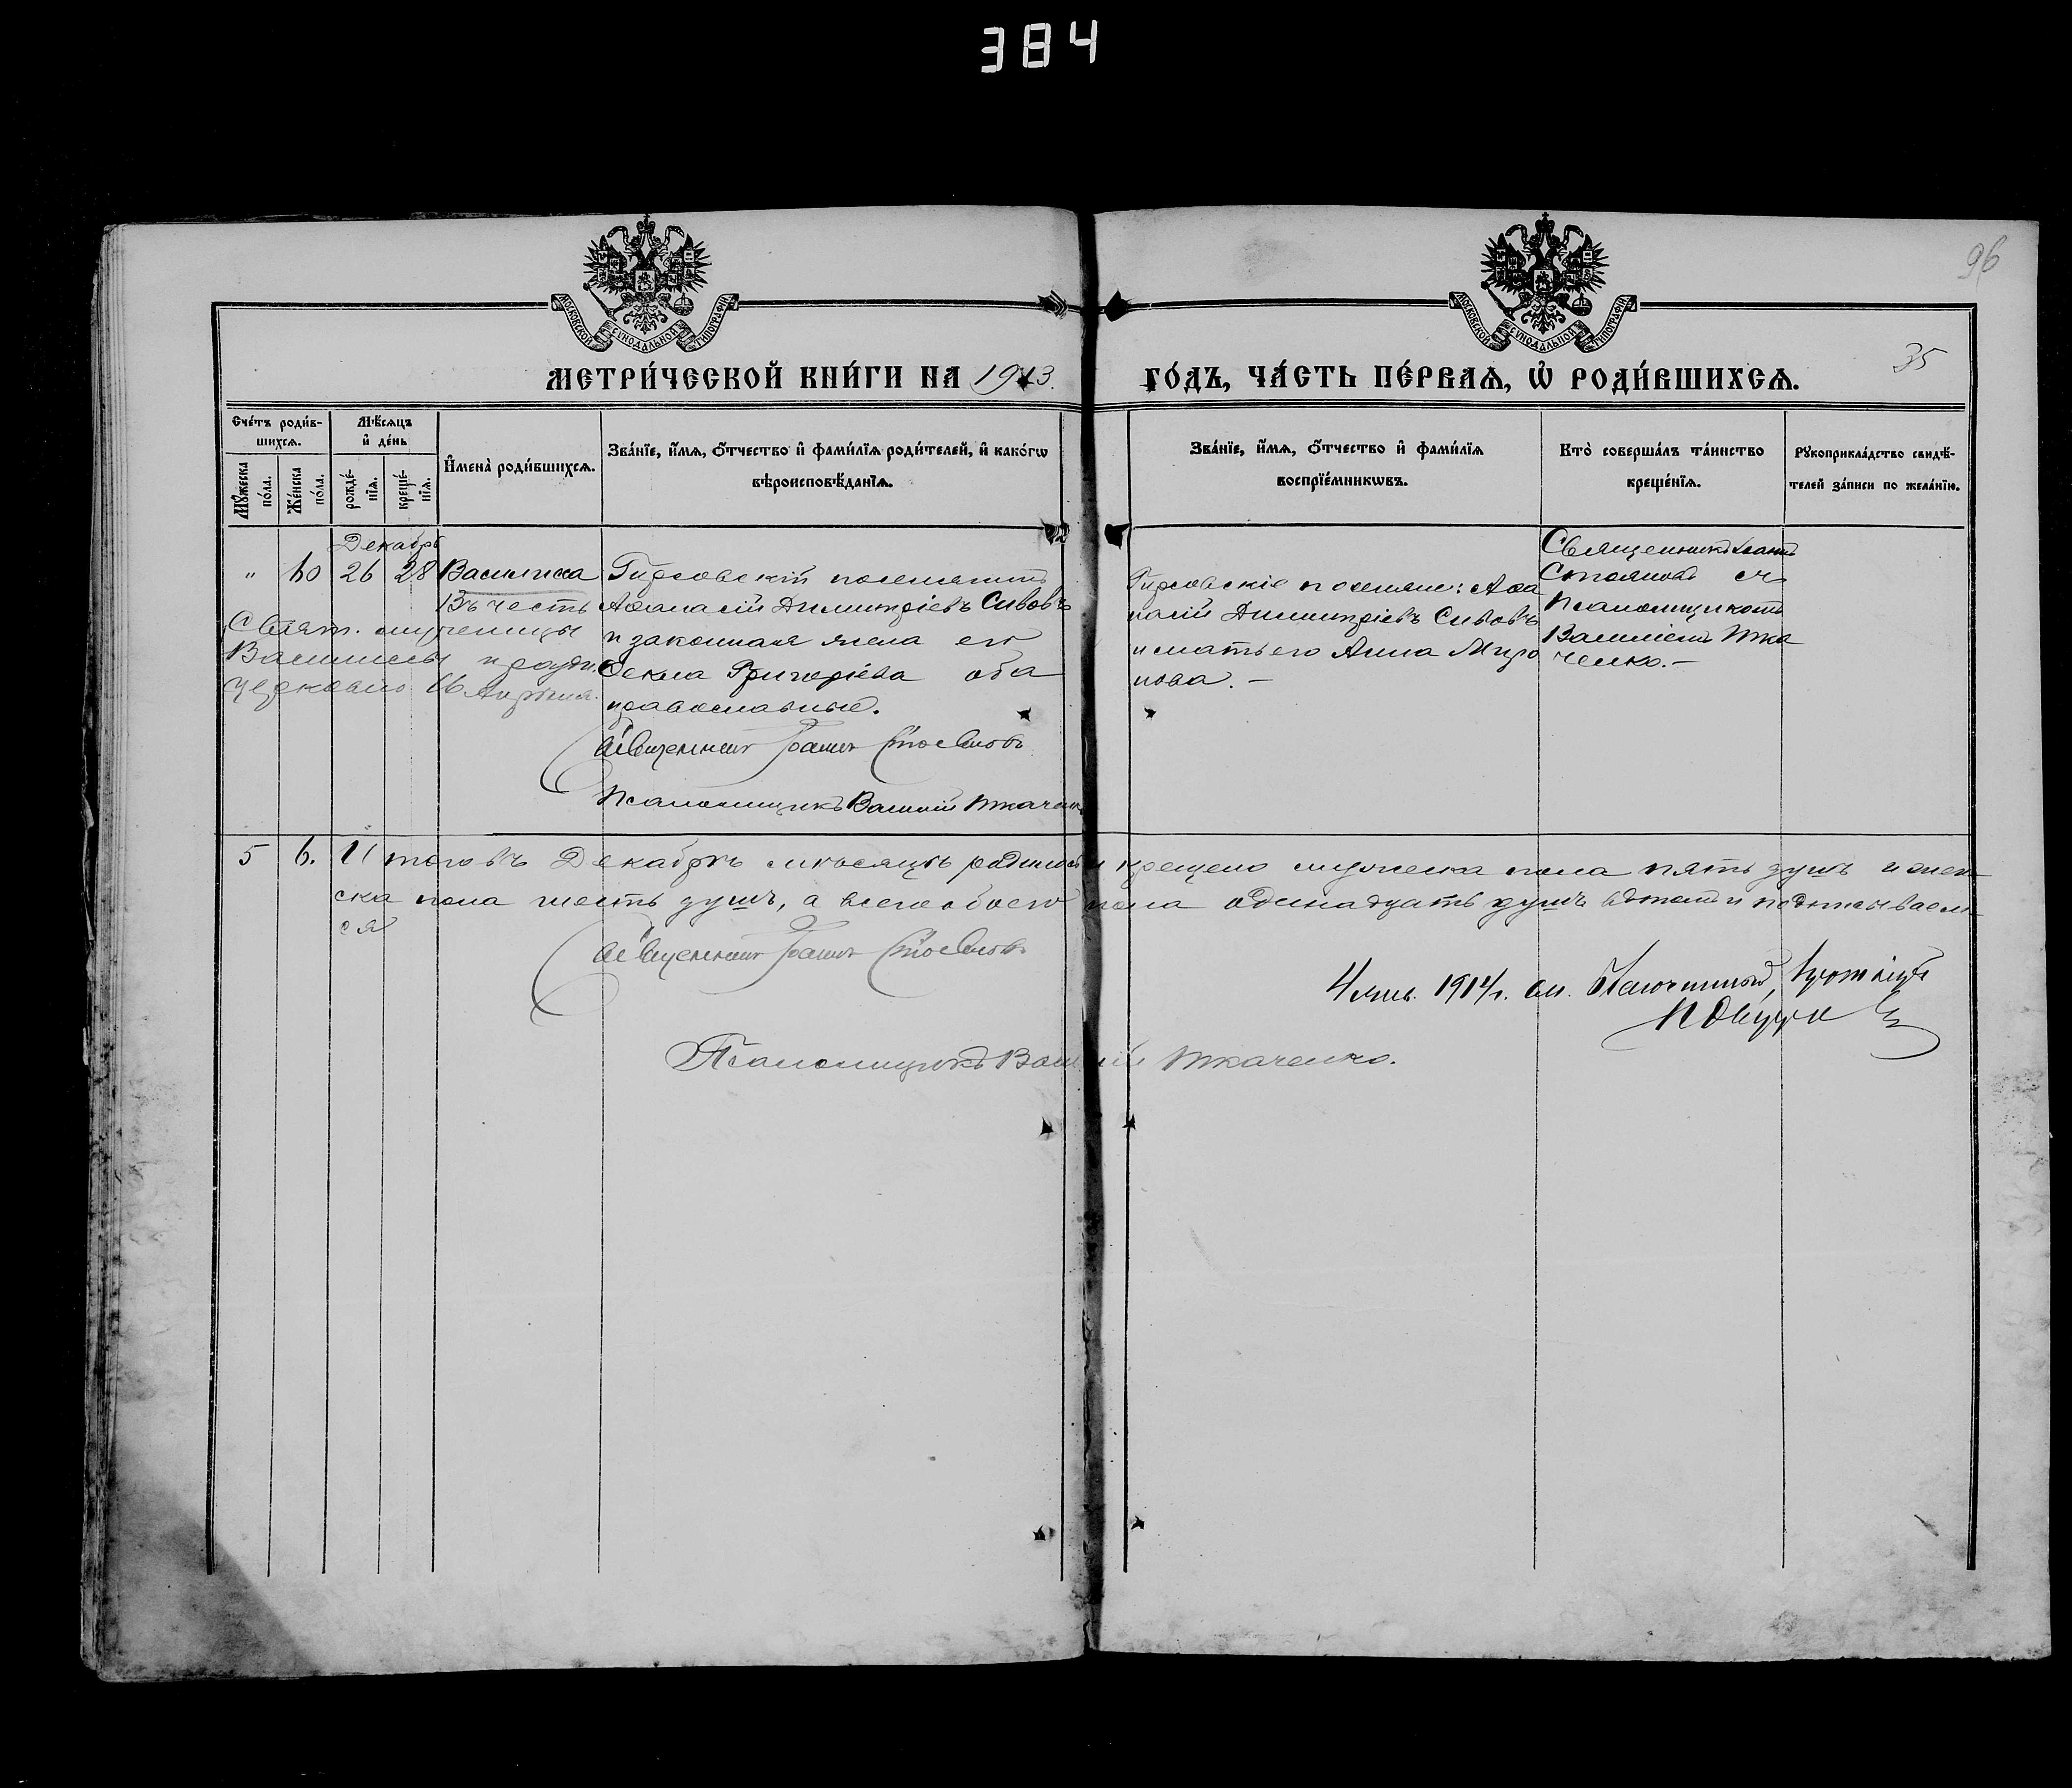 384
96
МОСКОВСКОЙ СѴНОДАЛЬНОЙ ТИПОГРАФІИ
МОСКОВСКОЙ СѴНОДАЛЬНОЙ ТИПОГРАФІИ
35
МЕТРИ́ЧЕСКОЙ КНИ́ГИ НА 1913. ГО́ДЪ, ЧА́СТЬ ПЕ́РВАѦ, Ѡ҆ РОДИ́ВШИХСѦ.
Сче́тъ роди́в-
шихсѧ.
Мꙋ́жеска по́ла.
Же́нска по́ла.
Мѣ́сѧцъ
и҆ де́нь
рожде́-
нїѧ.
креще́-
нїѧ.
И҆мена̀ роди́вшихсѧ.
Зва́нїе, и҆́мѧ, ѻ҆́тчество и҆ фами́лїѧ роди́телей, и҆ како́гѡ
вѣроисповѣ́данїѧ.
Зва́нїе, и҆́мѧ, ѻ҆́тчество и҆ фами́лїѧ
воспрїе́мникѡвъ.
Кто̀ соверша́лъ та́инство
креще́нїѧ.
Рꙋкоприкла́дство свидѣ́-
телей за́писи по жела́нїю.
Декабрь
" 60 26 28 Василисса
Въ честь
Свят. мученицы
Василисы праздн.
церковью 16 Апрѣля.
поселянинъ
Аѳанасій Димитріевъ Сивовъ
и законная жена его
Ѳекла Григоріева оба
православные.
Священникъ Іоаннъ Стояновъ
Псаломщикъ Василій Ткаченко
поселяне: Аѳа
насій Димитріевъ Сивовъ
и мать его Анна Миро
нова. —
Священникъ Іоаннъ
Стояновъ съ
Псаломщикомъ
Василіемъ Тка
ченко. —
5 6. Итого въ Декабрѣ мѣсяцѣ родилось и крещено мужеска пола пять душъ и жен
ска пола шесть душъ, а всего обоего пола одинадцать душъ въ томъ и подписываем
ся
Священникъ Іоаннъ Стояновъ
4 янв. 1914 г. см. Благочинный,
Псаломщикъ Василій Ткаченко.